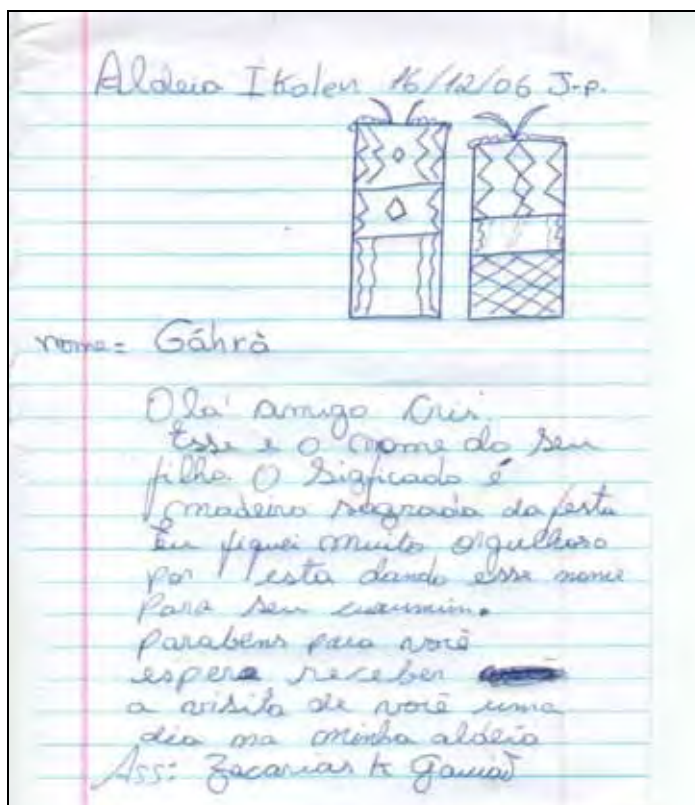 Aldeia Ikolen 16/12/06 J-p.
nome= Gáhrà
Olá amigo Cris.
Esse e o nome do seu
filho. O Sigficado é
madeira sagrada da festa
Eu fiquei muito orgulhoso
por esta dando esse nome
para seu curumim.
parabens para você
espera receber
a visita de você uma
dia na minha aldeia
Ass: Zacarias K Gavião